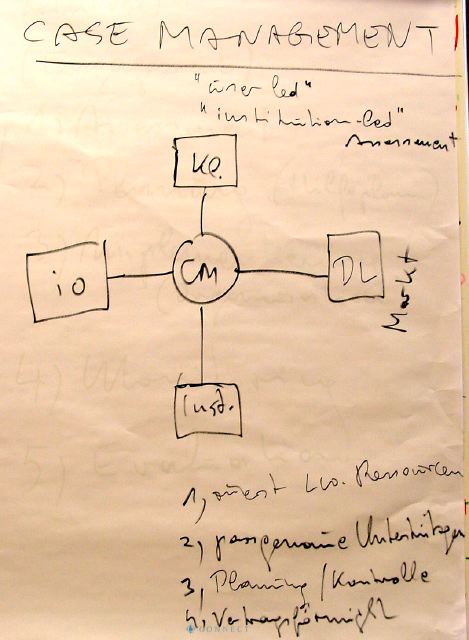 CASE MANAGEMENT
"user led"
"institution-led"
Assessment
Kl.
io
CM
DL
Markt
Inst.
1, zuerst Ressourcen
2, passgenaue
3, Planung / Kontrolle
4,
4)
5) Evaluation
CONNECT